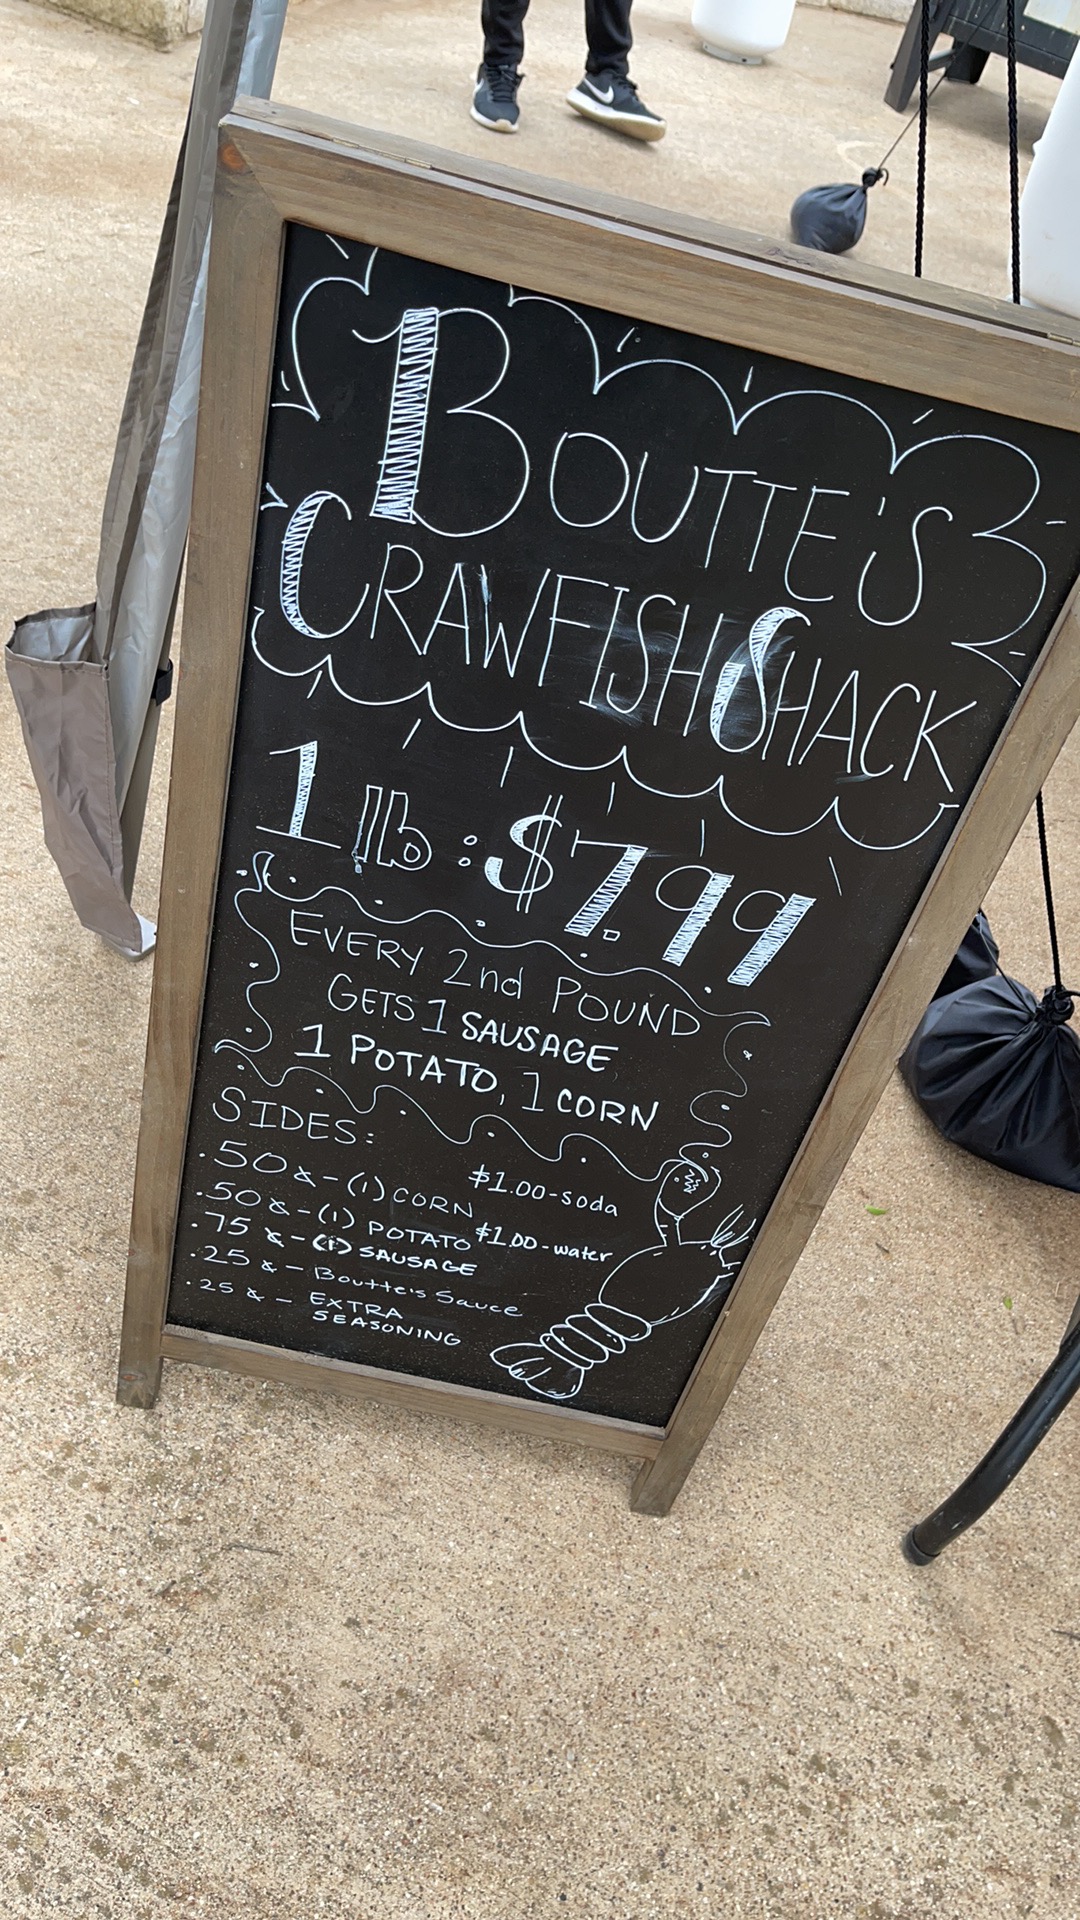 BOUTTE'S
CRAWFISH SHACK
1 lb : $7.99
EVERY 2nd POUND
GETS 1 SAUSAGE
1 POTATO, 1 CORN
SIDES:
.50¢ - (1) CORN
.50¢ - (1) POTATO
.75¢ - (1) SAUSAGE
.25¢ - Boutte's Sauce
.25¢ - EXTRA
SEASONING
$1.00 - soda
$1.00 - water